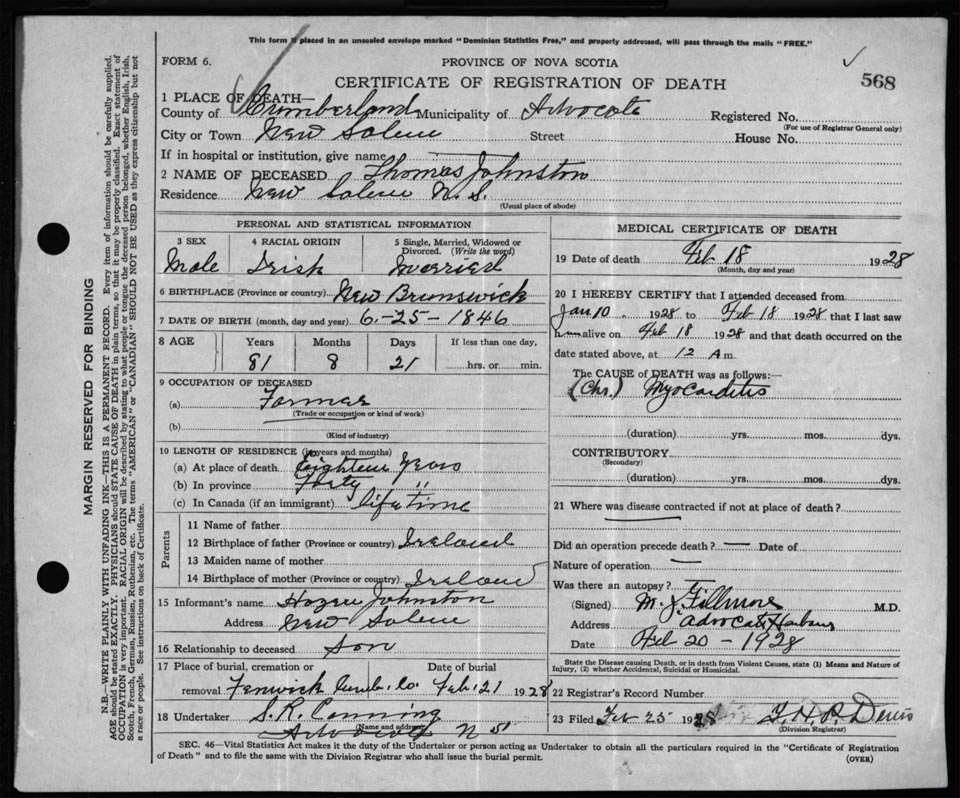 This form if placed in an unsealed envelope marked "Dominion Statistics Free," and properly addressed, will pass through the mails "FREE."
FORM 6.
PROVINCE OF NOVA SCOTIA
CERTIFICATE OF REGISTRATION OF DEATH
568
1 PLACE OF DEATH—
County of Cumberland Municipality of Advocate Registered No.
(For use of Registrar General only)
City or Town New Salem Street House No.
If in hospital or institution, give name
2 NAME OF DECEASED Thomas Johnston
Residence New Salem N.S.
(Usual place of abode)
PERSONAL AND STATISTICAL INFORMATION
3 SEX 4 RACIAL ORIGIN 5 Single, Married, Widowed or Divorced. (Write the word)
Male Irish Married
6 BIRTHPLACE (Province or country) New Brunswick
7 DATE OF BIRTH (month, day and year) 6-25-1846
8 AGE Years Months Days If less than one day,
81 8 21 hrs. or min.
9 OCCUPATION OF DECEASED
(a) Farmer
(Trade or occupation or kind of work)
(b)
(Kind of industry)
10 LENGTH OF RESIDENCE (in years and months)
(a) At place of death Eighteen Years
(b) In province Forty "
(c) In Canada (if an immigrant) life time
Parents
11 Name of father
12 Birthplace of father (Province or country) Ireland
13 Maiden name of mother
14 Birthplace of mother (Province or country) Ireland
15 Informant's name Hazen Johnston
Address New Salem
16 Relationship to deceased Son
17 Place of burial, cremation or Date of burial
removal Fenwick Cumb. Co. Feb. 21 1928
18 Undertaker S. R. Canning
Name and address
Advocate N S
MEDICAL CERTIFICATE OF DEATH
19 Date of death Feb 18 1928
(Month, day and year)
20 I HEREBY CERTIFY that I attended deceased from
Jan 10, 1928 to Feb 18 1928 that I last saw
him alive on Feb 18 1928 and that death occurred on the
date stated above, at 12 A m.
The CAUSE of DEATH was as follows:—
(Chr.) Myocarditis
(duration) yrs. mos. dys.
CONTRIBUTORY
(Secondary)
(duration) yrs. mos. dys.
21 Where was disease contracted if not at place of death?
Did an operation precede death? — Date of
Nature of operation —
Was there an autopsy?
(Signed) M. J. Fillmore M.D.
Address Advocate Harbour
Date Feb 20 - 1928
State the Disease causing Death, or in death from Violent Causes, state (1) Means and Nature of
Injury, (2) whether Accidental, Suicidal or Homicidal.
22 Registrar's Record Number
23 Filed Feb 25 1928
(Division Registrar)
SEC. 46—Vital Statistics Act makes it the duty of the Undertaker or person acting as Undertaker to obtain all the particulars required in the "Certificate of Registration
of Death" and to file the same with the Division Registrar who shall issue the burial permit. (OVER)
MARGIN RESERVED FOR BINDING
N.B.—WRITE PLAINLY WITH UNFADING INK—THIS IS A PERMANENT RECORD. Every item of information should be carefully supplied.
AGE should be stated EXACTLY. PHYSICIANS should STATE CAUSE OF DEATH in plain terms, so that it may be properly classified. Exact statement of
OCCUPATION is very important. RACIAL ORIGIN will be described by stating to what people or tongue the deceased person belonged, whether English, Irish,
Scotch, French, German, Russian, Ruthenian, etc. The terms "AMERICAN" or "CANADIAN" SHOULD NOT BE USED as they express citizenship but not
a race or people. See instructions on back of Certificate.